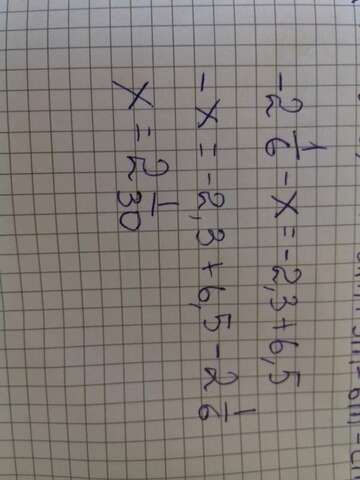 -2 1/6 - x = -2,3 + 6,5
-x = -2,3 + 6,5 - 2 1/6
x = 2 1/30